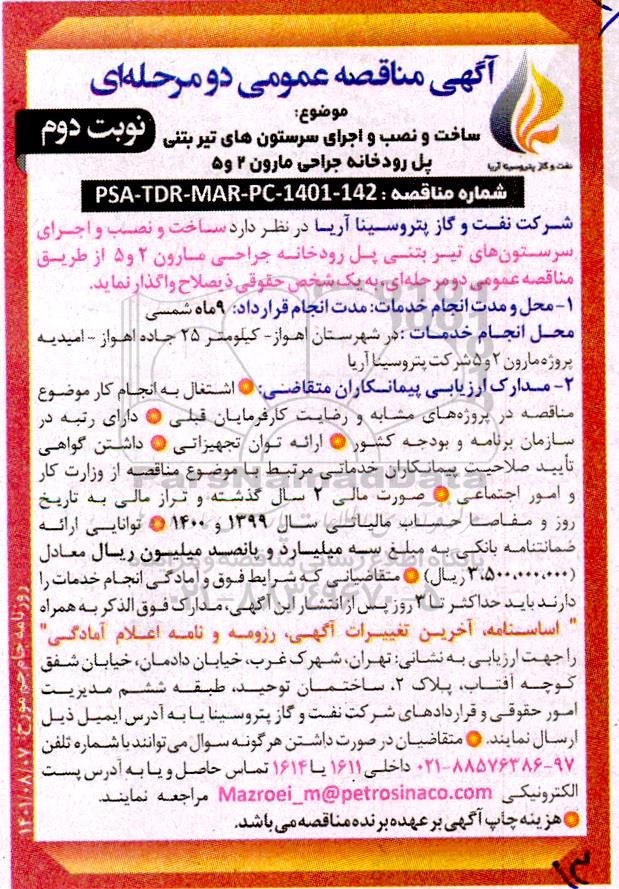 آگهی مناقصه عمومی دو مرحله‌ای
موضوع:
ساخت و نصب و اجرای سرستون های تیر بتنی
پل رودخانه جراحی مارون ۲ و ۵
نوبت دوم
نفت و گاز پتروسینا آریا
شماره مناقصه : PSA-TDR-MAR-PC-1401-142
شرکت نفت و گاز پتروسینا آریا در نظر دارد ساخت و نصب و اجرای
سرستون‌های تیر بتنی پل رودخانه جراحی مارون ۲ و ۵ از طریق
مناقصه عمومی دو مرحله‌ای، به یک شخص حقوقی ذیصلاح واگذار نماید.
۱- محل و مدت انجام خدمات: مدت انجام قرارداد: ۹ ماه شمسی
محل انجام خدمات : در شهرستان اهواز- کیلومتر ۲۵ جاده اهواز - امیدیه
پروژه مارون ۲ و ۵ شرکت پتروسینا آریا
۲- مدارک ارزیابی پیمانکاران متقاضی: اشتغال به انجام کار موضوع
مناقصه در پروژه‌های مشابه و رضایت کارفرمایان قبلی دارای رتبه در
سازمان برنامه و بودجه کشور ارائه توان تجهیزاتی داشتن گواهی
تأیید صلاحیت پیمانکاران خدماتی مرتبط با موضوع مناقصه از وزارت کار
و امور اجتماعی صورت مالی ۲ سال گذشته و تراز مالی به تاریخ
روز و مفاصا حساب مالیاتی سال ۱۳۹۹ و ۱۴۰۰ توانایی ارائه
ضمانتنامه بانکی به مبلغ سه میلیارد و پانصد میلیون ریال معادل
(۳،۵۰۰،۰۰۰،۰۰۰ ریال) متقاضیانی که شرایط فوق و آمادگی انجام خدمات را
دارند باید حداکثر تا ۳ روز پس از انتشار این آگهی، مدارک فوق الذکر به همراه
" اساسنامه، آخرین تغییرات آگهی، رزومه و نامه اعلام آمادگی"
را جهت ارزیابی به نشانی: تهران، شهرک غرب، خیابان دادمان، خیابان شفق
کوچه آفتاب، پلاک ۲، ساختمان توحید، طبقه ششم مدیریت
امور حقوقی و قراردادهای شرکت نفت و گاز پتروسینا یا به آدرس ایمیل ذیل
ارسال نمایند. متقاضیان در صورت داشتن هرگونه سوال می‌توانند با شماره تلفن
۰۲۱-۸۸۵۷۶۳۸۶-۹۷ داخلی ۱۶۱۱ یا ۱۶۱۴ تماس حاصل و یا به آدرس پست
الکترونیکی Mazroei_m@petrosinaco.com مراجعه نمایند.
هزینه چاپ آگهی بر عهده برنده مناقصه می‌باشد.
روزنامه جام جم مورخ ۱۴۰۱/۰۸/۰۷
ParsNamadData
۰۲۱-۸۸۳۴۹۶۷۰-۵